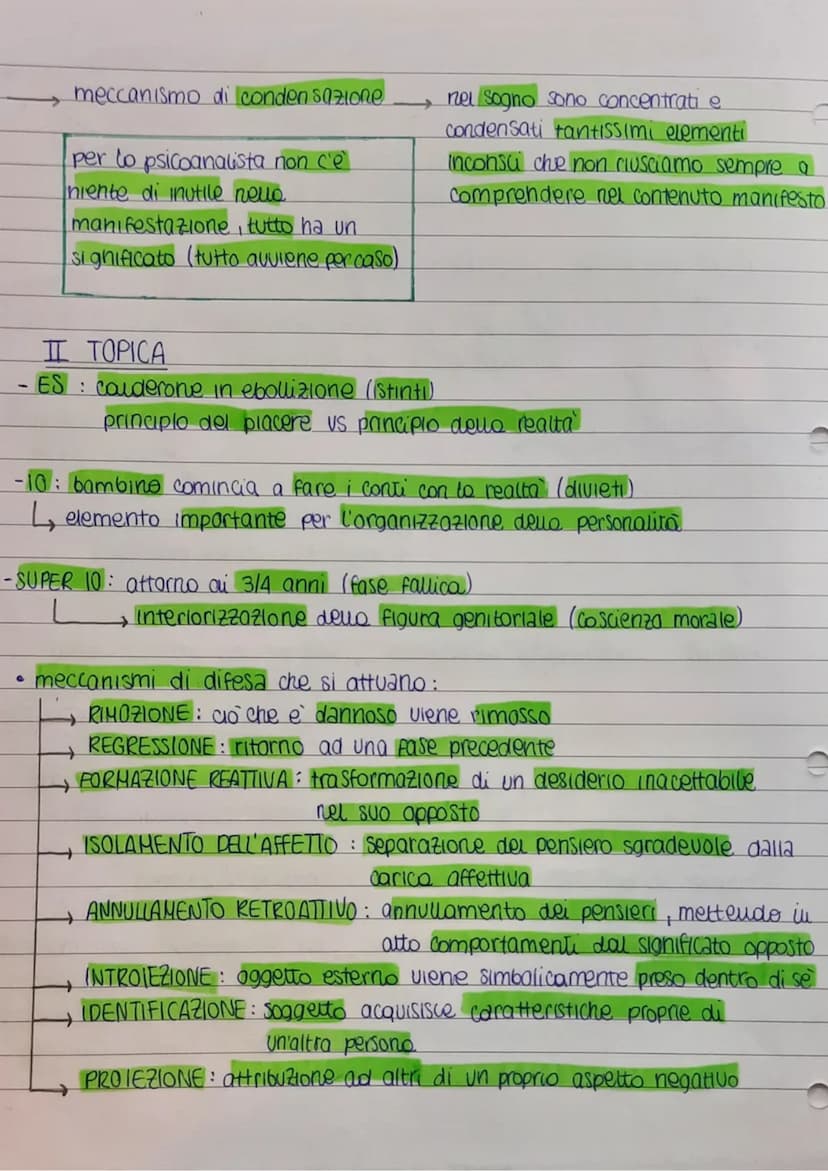 → meccanismo di condensazione → nel sogno sono concentrati e
condensati tantissimi elementi
inconsci che non riusciamo sempre a
comprendere nel contenuto manifesto
per lo psicoanalista non c'è
niente di inutile nella
manifestazione, tutto ha un
significato (tutto avviene per caso)
II TOPICA
- ES : calderone in ebollizione (istinti)
principio del piacere vs principio della realtà
- IO : bambino comincia a fare i conti con la realtà (divieti)
↳ elemento importante per l'organizzazione della personalità
- SUPER IO : attorno ai 3/4 anni (fase fallica)
→ interiorizzazione della figura genitoriale (coscienza morale)
• meccanismi di difesa che si attuano :
→ RIMOZIONE : ciò che è dannoso viene rimosso
→ REGRESSIONE : ritorno ad una fase precedente
→ FORMAZIONE REATTIVA : trasformazione di un desiderio inacettabile
nel suo opposto
→ ISOLAMENTO DELL'AFFETTO : separazione del pensiero sgradevole dalla
carica affettiva
→ ANNULLAMENTO RETROATTIVO : annullamento dei pensieri, mettendo in
atto comportamenti dal significato opposto
→ INTROIEZIONE : oggetto esterno viene simbolicamente preso dentro di sè
→ IDENTIFICAZIONE : soggetto acquisisce caratteristiche proprie di
un'altra persona
→ PROIEZIONE : attribuzione ad altri di un proprio aspetto negativo